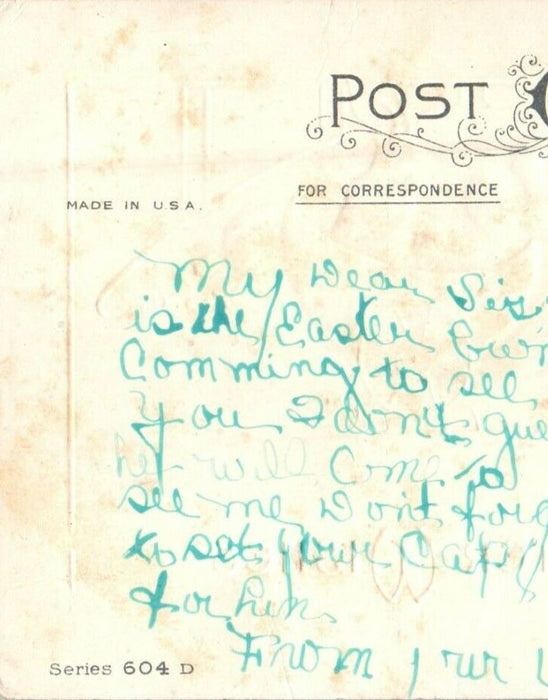 POST
FOR CORRESPONDENCE
MADE IN U.S.A.
My Dear Sis
is the Easter
Comming to see
you I dont gue
he will Come to
see me Dont forg
to set your Cap
for him
From your
Series 604 D